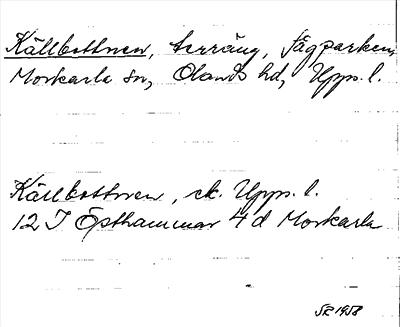 Källbottnen, terräng, fågparken,
Morkarla sn, Olands hd, Upps. l.
Källbottnen, ek. Upps. l.
12 I Östhammar 4 d Morkarla
SR 1958